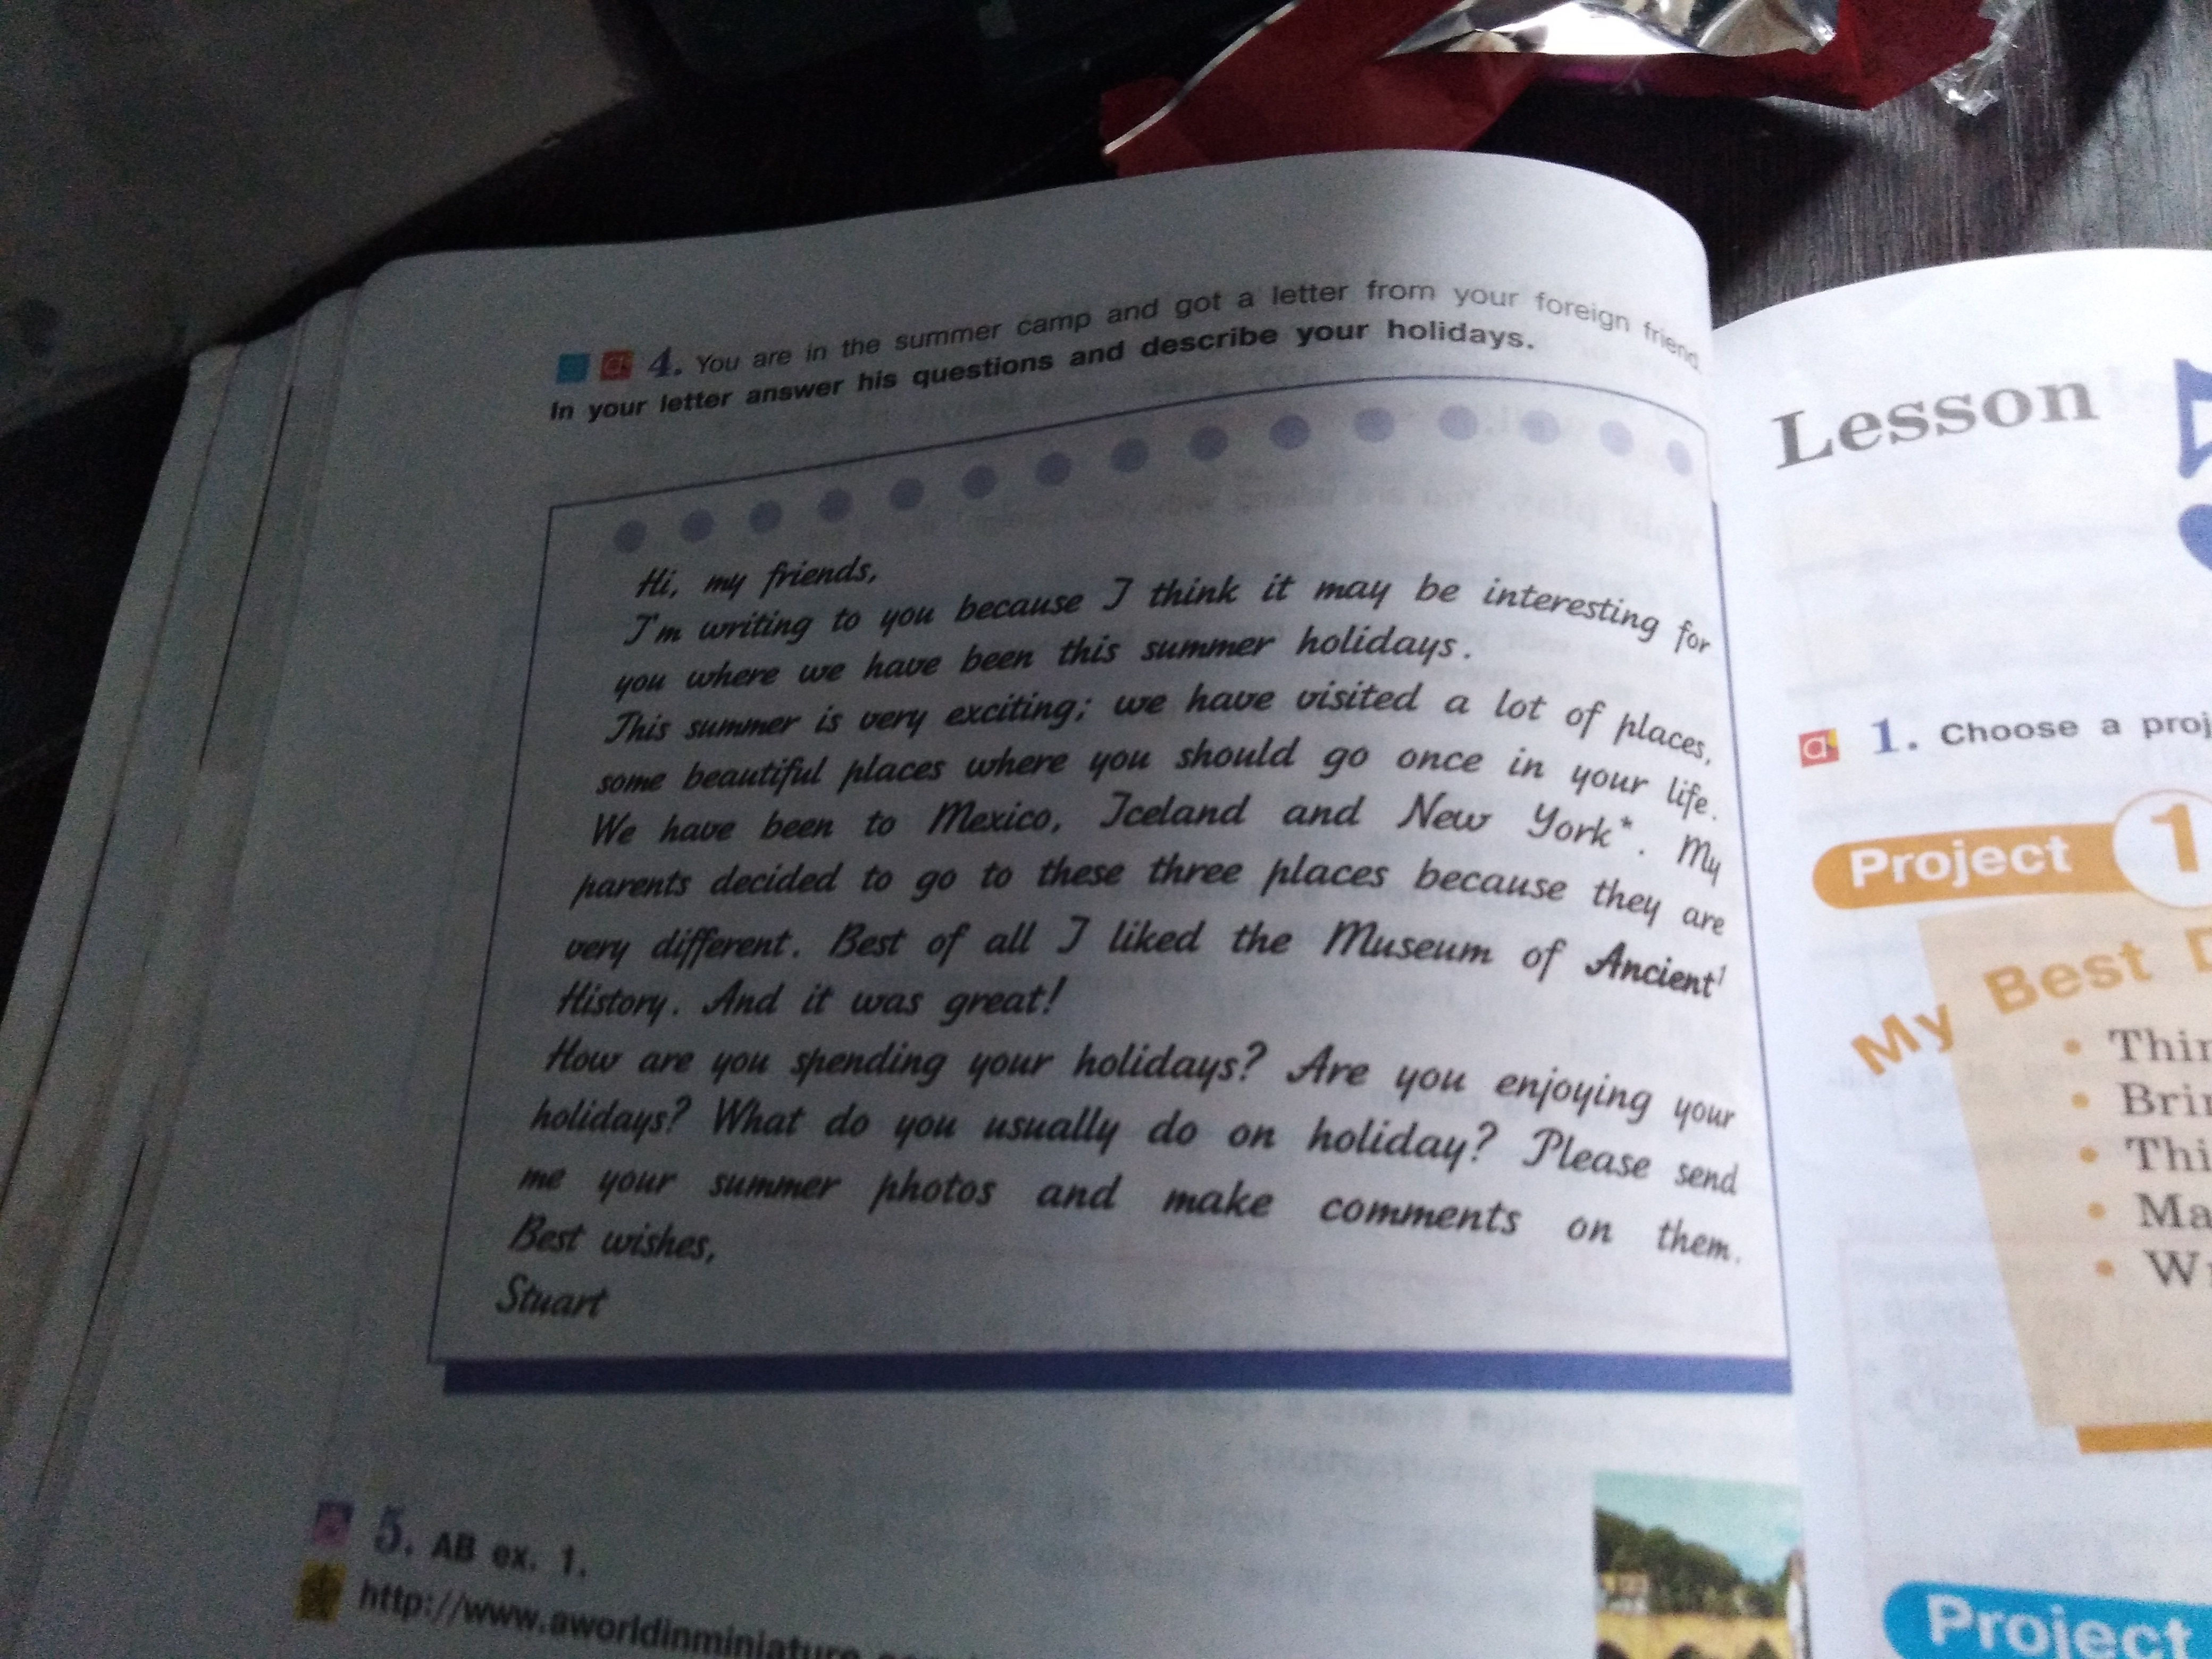 4. You are in the summer camp and got a letter from your foreign friend.
In your letter answer his questions and describe your holidays.
Hi, my friends,
I'm writing to you because I think it may be interesting for
you where we have been this summer holidays.
This summer is very exciting; we have visited a lot of places,
some beautiful places where you should go once in your life.
We have been to Mexico, Iceland and New York*. My
parents decided to go to these three places because they are
very different. Best of all I liked the Museum of Ancient¹
History. And it was great!
How are you spending your holidays? Are you enjoying your
holidays? What do you usually do on holiday? Please send
me your summer photos and make comments on them.
Best wishes,
Stuart
5. AB ex. 1.
http://www.aworldinminiature
Lesson 5
a 1. Choose a proj
Project 1
My Best D
• Thin
• Brin
• Thi
• Ma
• Wr
Project